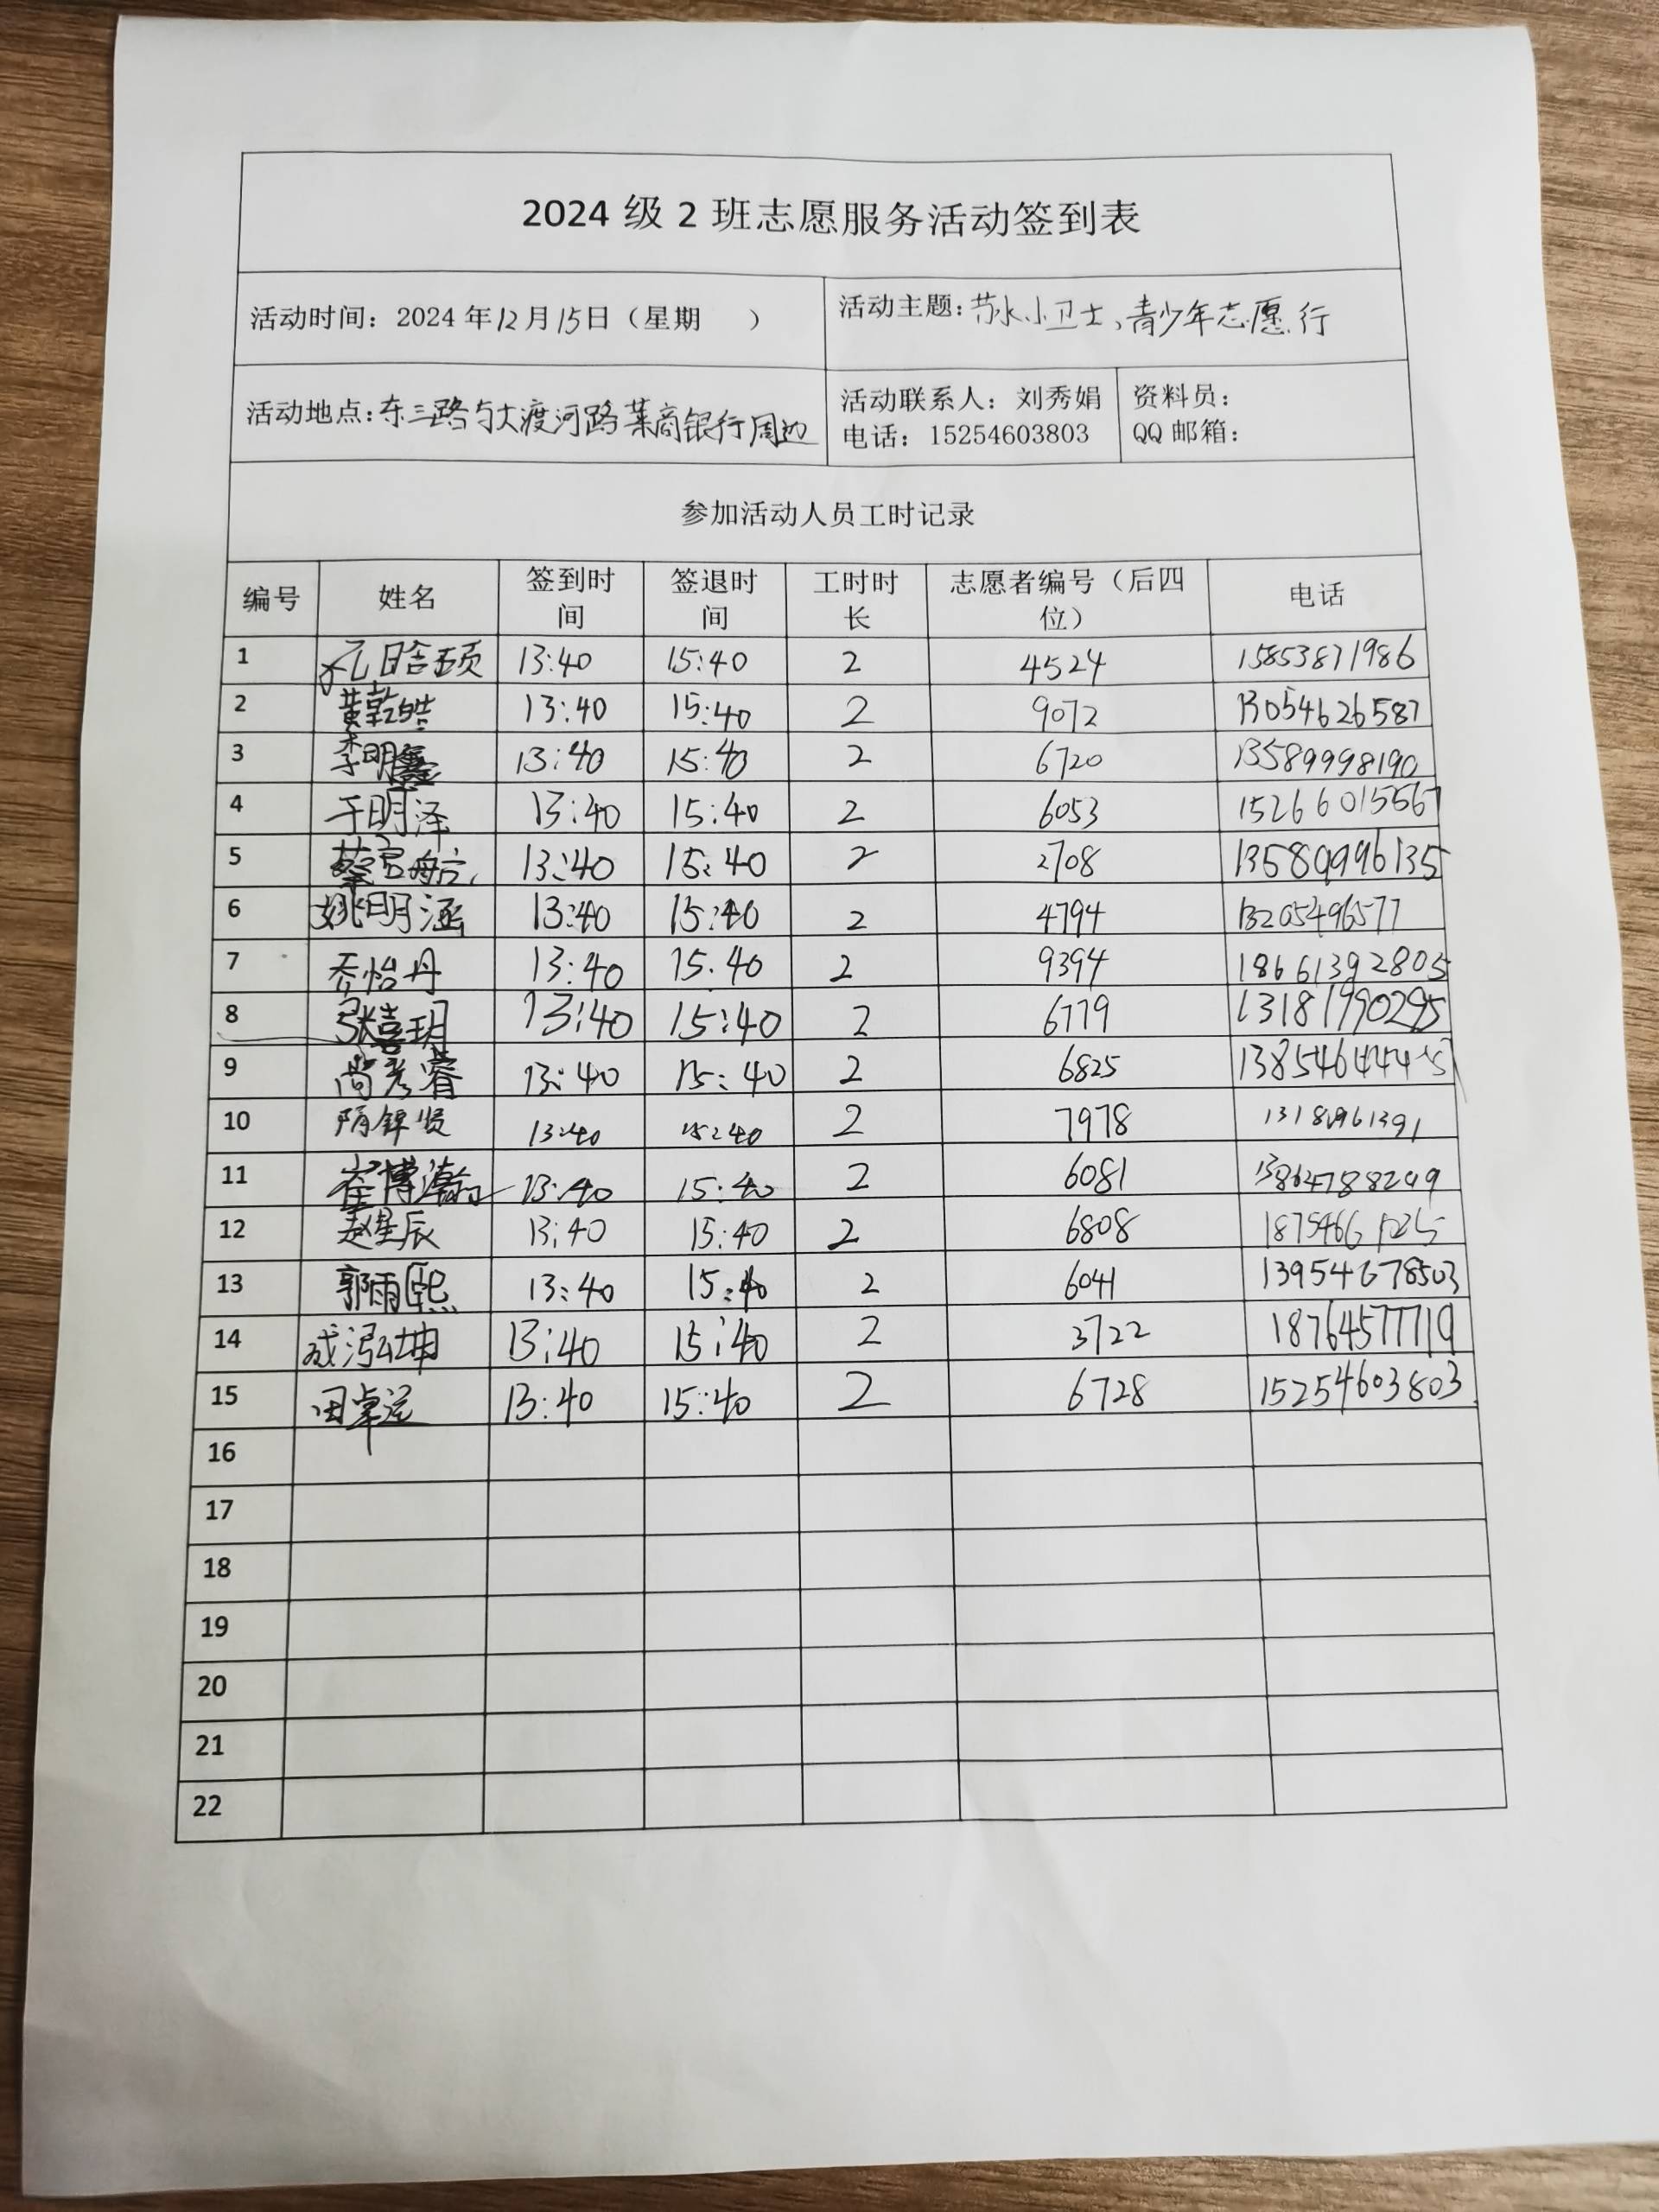 2024 级 2 班志愿服务活动签到表
活动时间：2024 年12月15日（星期　　） 活动主题：节水小卫士、青少年志愿行
活动地点：东三路与大渡河路莱商银行周边 活动联系人：刘秀娟 资料员：
电话：15254603803 QQ 邮箱：
参加活动人员工时记录
编号 姓名 签到时间 签退时间 工时时长 志愿者编号（后四位） 电话
1 13:40 15:40 2 4524 15853871986
2 黄乾皓 13:40 15:40 2 9072 13054626587
3 李明鑫 13:40 15:40 2 6720 13589998190
4 于明泽 13:40 15:40 2 6053 15266015567
5 13:40 15:40 2 2708 13589996135
6 姚明涵 13:40 15:40 2 4794 13205496577
7 乔怡丹 13:40 15.40 2 9394 18661392805
8 张喜玥 13:40 15:40 2 6779 13181990295
9 尚彦睿 13:40 15:40 2 6825
10 隋锦贤 13:40 15:40 2 7978
11 崔博瀚 13:40 15:40 2 6081 13864788249
12 赵星辰 13:40 15:40 2 6808
13 郭雨熙 13:40 15:40 2 6041 13954678503
14 成泓坤 13:40 15:40 2 3722 18764577719
15 13:40 15:40 2 6728 15254603803
16
17
18
19
20
21
22